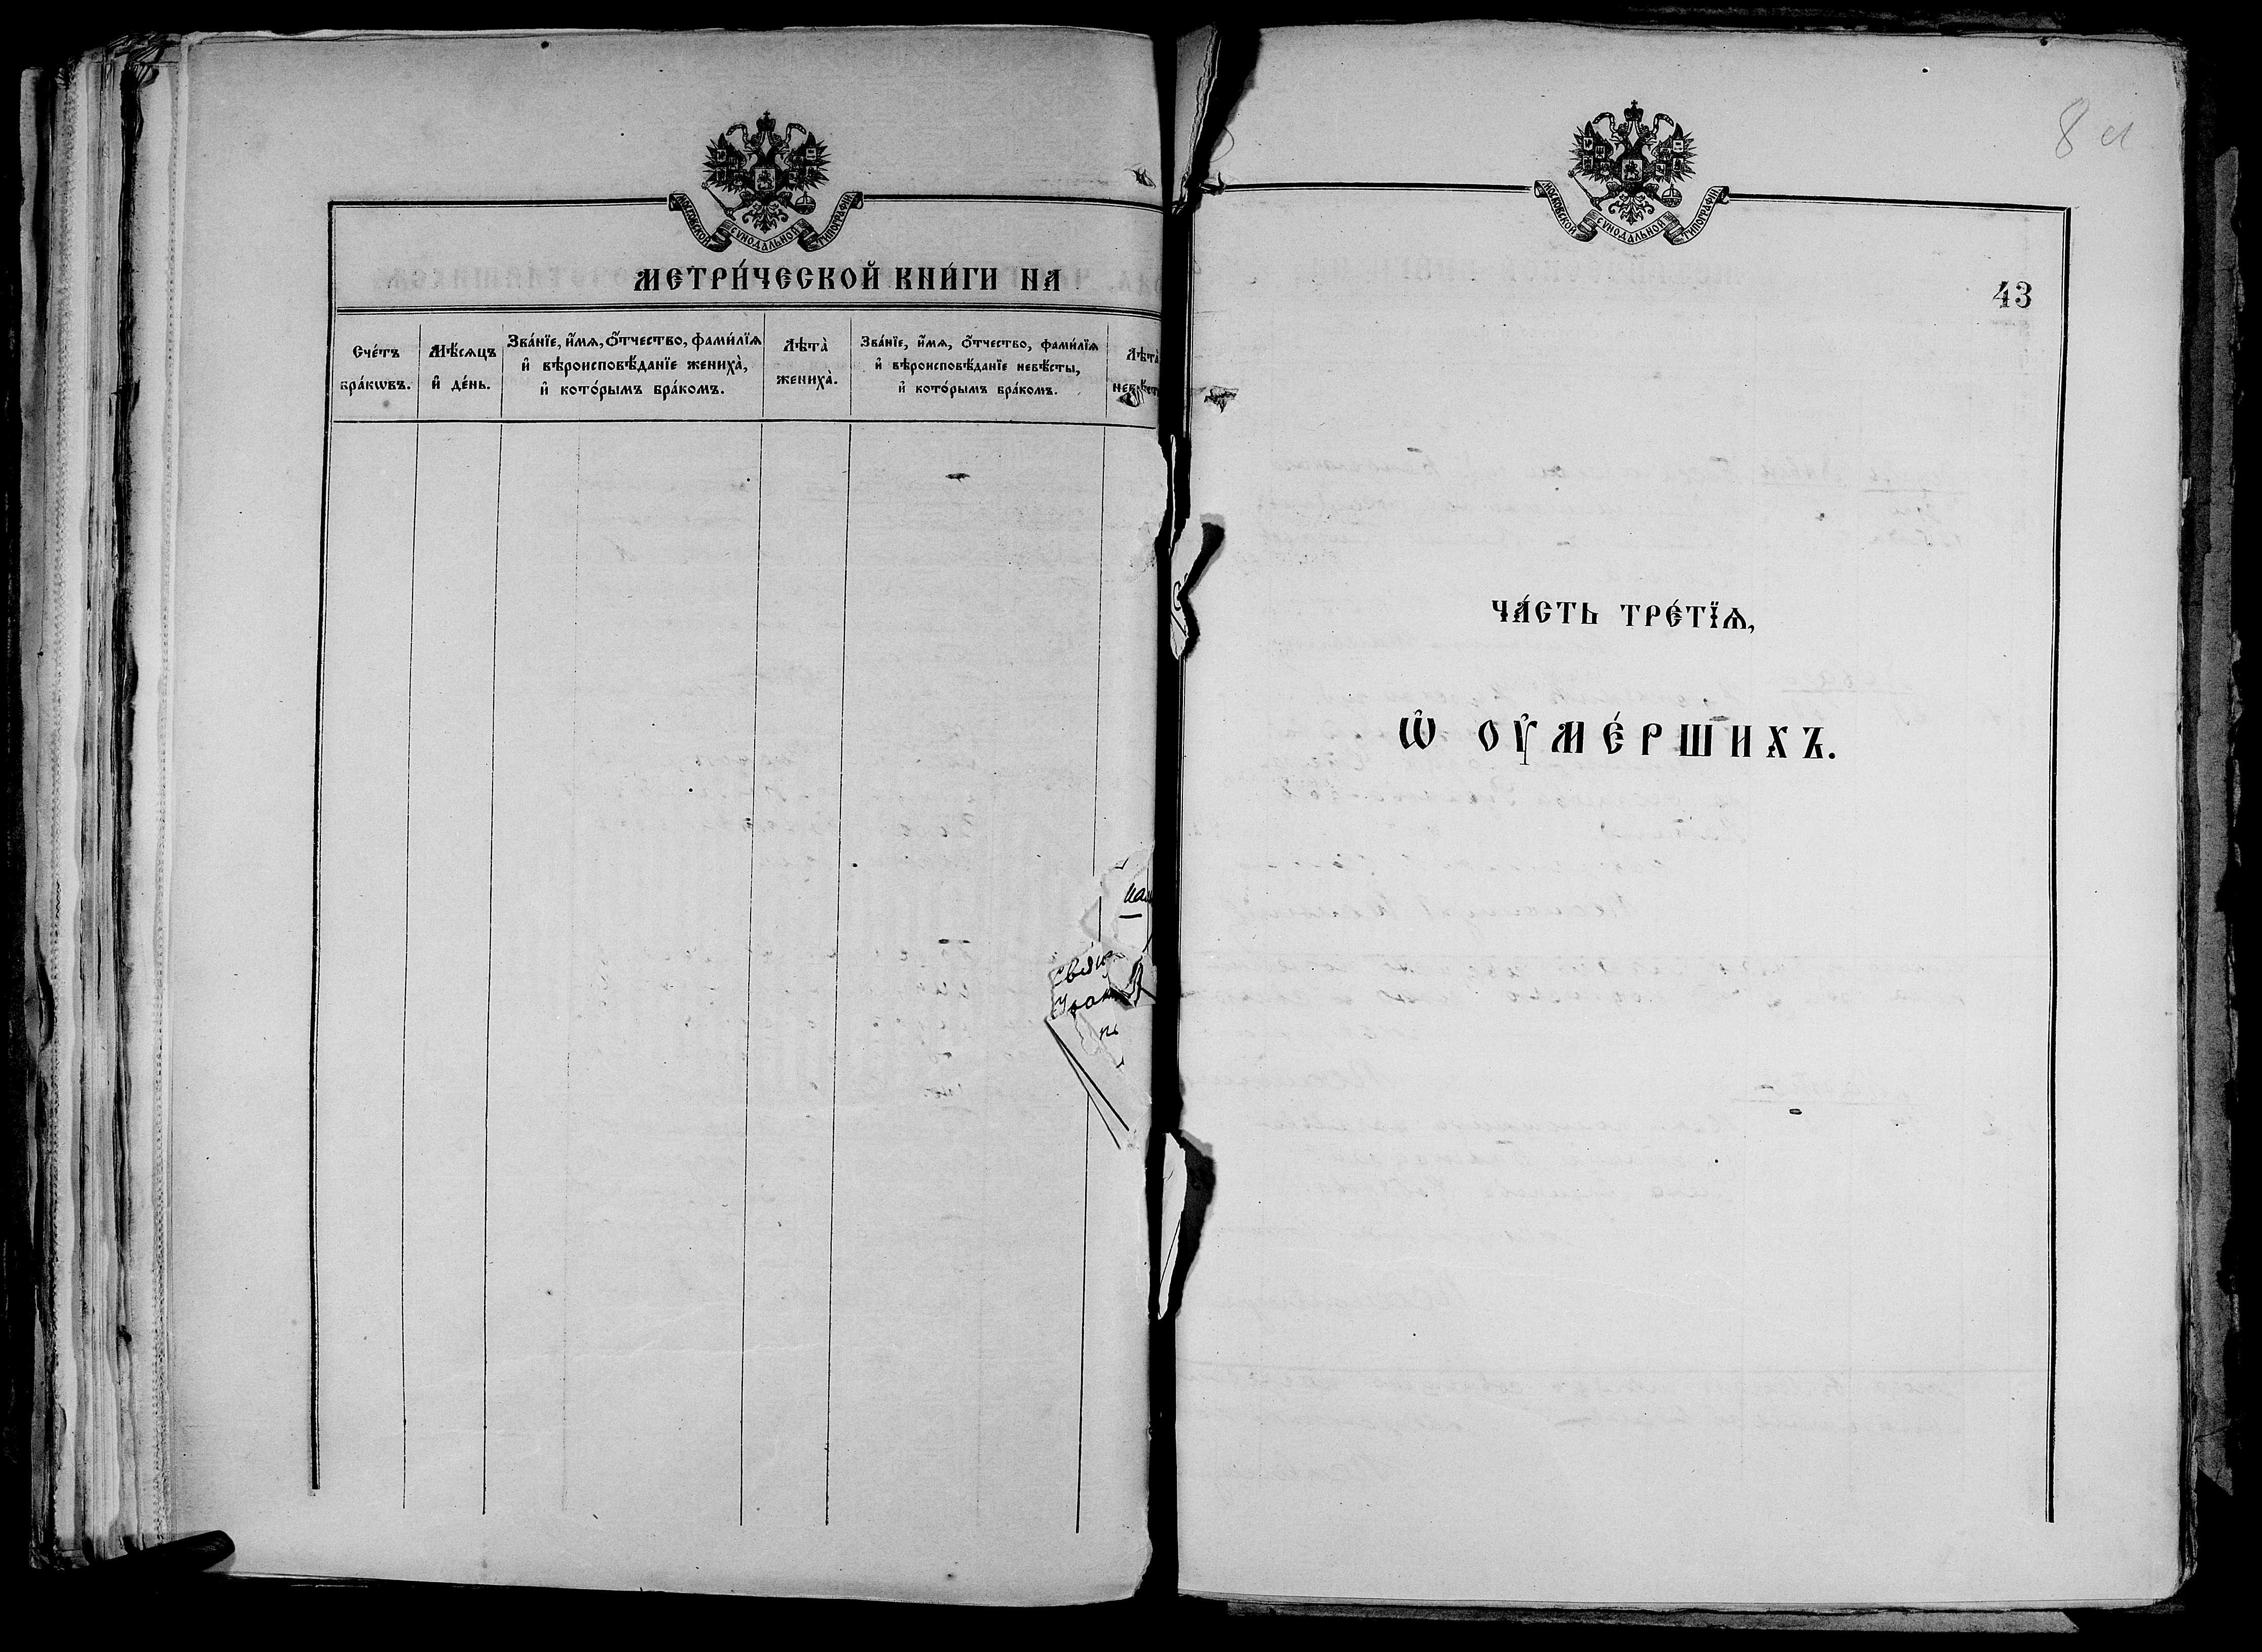 МОСКОВСКОЙ СѴНОДАЛЬНОЙ ТИПОГРАФІИ
МЕТРИ́ЧЕСКОЙ КНИ́ГИ НА
Сче́тъ
бра́кѡвъ.
Мѣ́сѧцъ
и҆ де́нь.
Зва́нїе, и҆́мѧ, ѻ҆́тчество, фами́лїѧ
и҆ вѣроисповѣ́данїе жениха̀,
и҆ кото́рымъ бра́комъ.
Лѣта̀
жениха̀.
Зва́нїе, и҆́мѧ, ѻ҆́тчество, фами́лїѧ
и҆ вѣроисповѣ́данїе невѣ́сты,
и҆ кото́рымъ бра́комъ.
Лѣта̀
невѣ́ст
8
МОСКОВСКОЙ СѴНОДАЛЬНОЙ ТИПОГРАФІИ
43
ЧА́СТЬ ТРЕ́ТЇѦ,
Ѡ҆ ОУ҆МЕ́РШИХЪ.